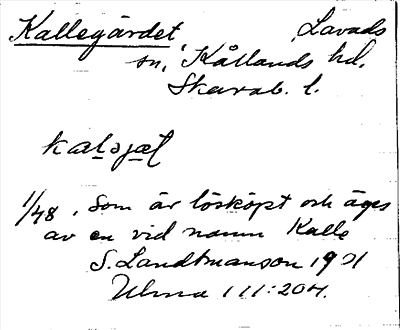 Kallegärdet Lavads
sn, Kållands hd,
Skarab. l.
1/48, som är lösköpt och äges
av en vid namn Kalle
S. Landtmanson 1901
Ulma 111:204.